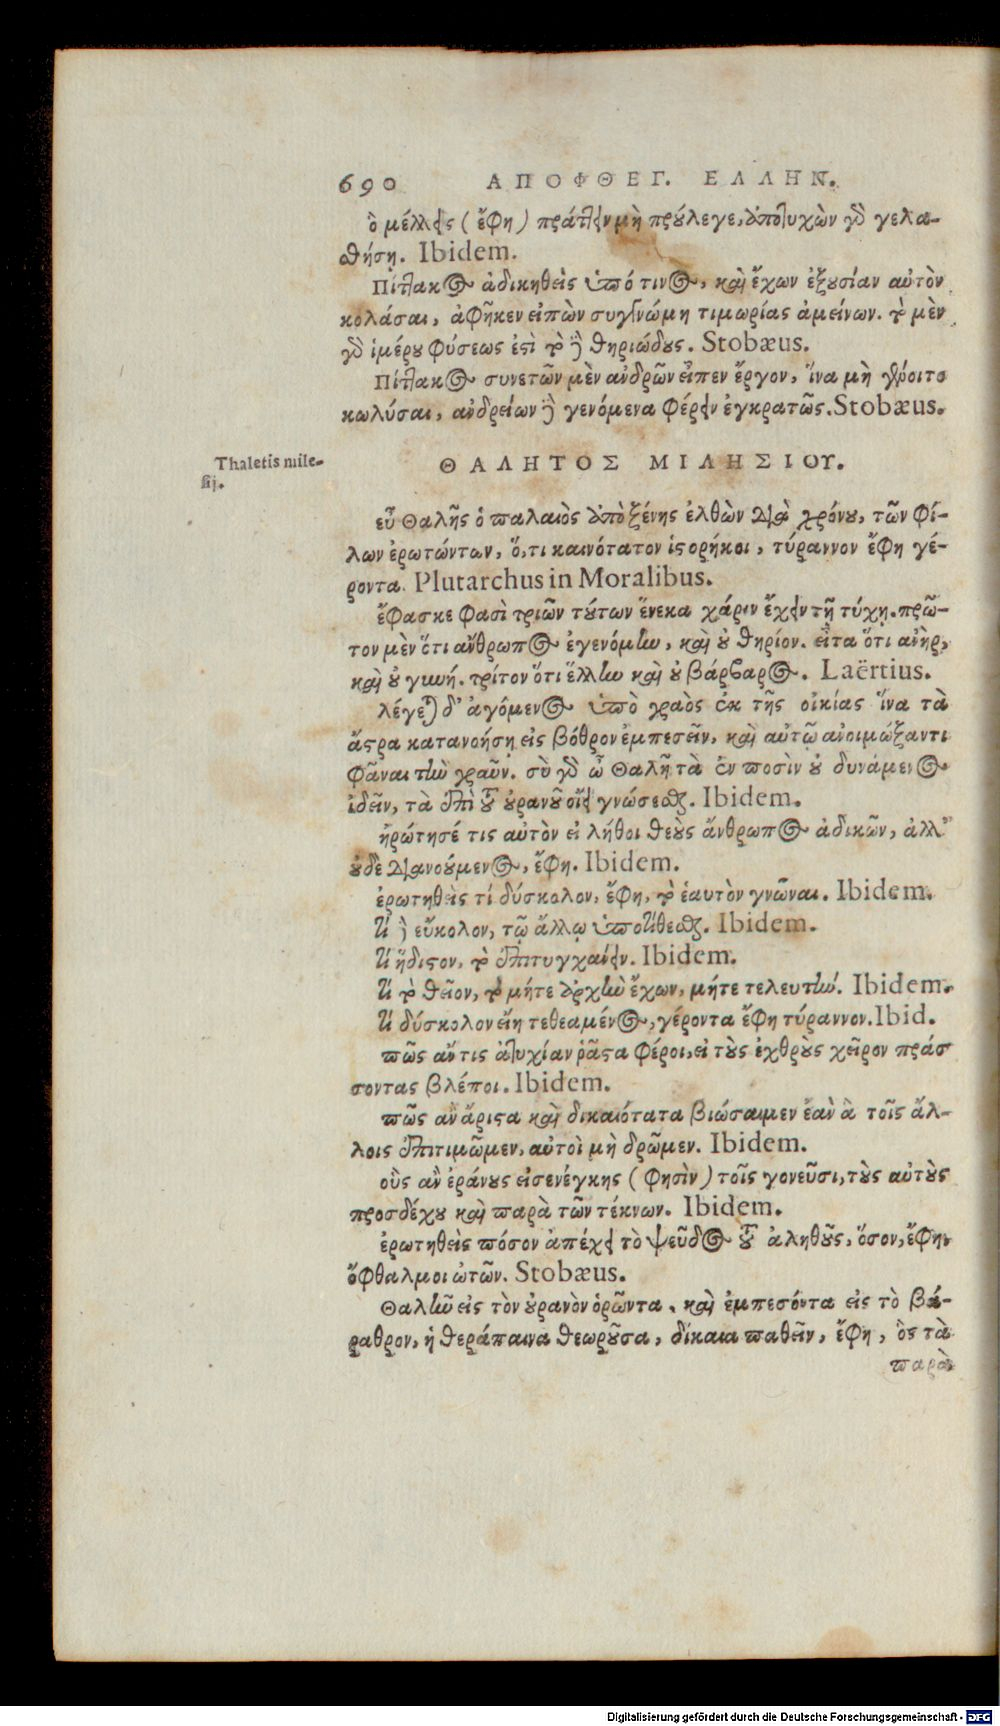 690 ΑΠΟΦΘΕΓ. ΕΛΛΗΝ.
ὃ μέλλεις (ἔφη) πράττειν μὴ πρόλεγε, ἀποτυχὼν γὰρ γελα-
θήσῃ. Ibidem.
Πίττακος ἀδικηθεὶς ὑπό τινος, καὶ ἔχων ἐξουσίαν αὐτὸν
κολάσαι, ἀφῆκεν εἰπὼν συγγνώμη τιμωρίας ἀμείνων. τὸ μὲν
γὰρ ἡμέρου φύσεως ἐστὶ τὸ δὲ θηριώδους. Stobæus.
Πίττακος συνετῶν μὲν ἀνδρῶν εἶπεν ἔργον, ἵνα μὴ γένοιτο
κωλύσαι, ἀνδρείων δὲ γενόμενα φέρειν ἐγκρατῶς. Stobæus.
Thaletis mile-
sij.
ΘΑΛΗΤΟΣ ΜΙΛΗΣΙΟΥ.
εὖ Θαλῆς ὁ παλαιὸς ἀπὸ ξένης ἐλθὼν διὰ χρόνου, τῶν φί-
λων ἐρωτώντων, ὅ,τι καινότατον ἱστορήκοι, τύραννον ἔφη γέ-
ροντα. Plutarchus in Moralibus.
ἔφασκε φασὶ τριῶν τούτων ἕνεκα χάριν ἔχειν τῇ τύχῃ. πρῶ-
τον μὲν ὅτι ἄνθρωπος ἐγενόμην, καὶ οὐ θηρίον. εἶτα ὅτι ἀνὴρ,
καὶ οὐ γυνή. τρίτον ὅτι ἕλλην καὶ οὐ βάρβαρος. Laërtius.
λέγεται δ' ἀγόμενος ὑπὸ γραὸς ἐκ τῆς οἰκίας ἵνα τὰ
ἄστρα κατανοήσῃ εἰς βόθρον ἐμπεσεῖν, καὶ αὐτῷ ἀνοιμώξαντι
φᾶναι τὴν γραῦν. σὺ γὰρ ὦ Θαλῆ τὰ ἐν ποσὶν οὐ δυνάμενος
ἰδεῖν, τὰ ἐπὶ τοῦ οὐρανοῦ οἴει γνώσεσθαι. Ibidem.
ἠρώτησέ τις αὐτὸν εἰ λήθοι θεοὺς ἄνθρωπος ἀδικῶν, ἀλλ'
οὐδε διανοούμενος, ἔφη. Ibidem.
ἐρωτηθεὶς τί δύσκολον, ἔφη, τὸ ἑαυτὸν γνῶναι. Ibidem.
τί δὲ εὔκολον, τῷ ἄλλῳ ὑποτίθεσθαι. Ibidem.
τί ἥδιστον, τὸ ἐπιτυγχάνειν. Ibidem.
τί τὸ θεῖον, τὸ μήτε ἀρχὴν ἔχων, μήτε τελευτήν. Ibidem.
τί δύσκολον εἴη τεθεαμένος, γέροντα ἔφη τύραννον. Ibid.
πῶς ἄν τις ἀτυχίαν ῥᾷστα φέροι, εἰ τοὺς ἐχθροὺς χεῖρον πράσ
σοντας βλέποι. Ibidem.
πῶς ἂν ἄριστα καὶ δικαιότατα βιώσαιμεν ἐὰν ἃ τοῖς ἄλ-
λοις ἐπιτιμῶμεν, αὐτοὶ μὴ δρῶμεν. Ibidem.
οὓς ἂν ἐράνους εἰσενέγκῃς (φησὶν) τοῖς γονεῦσι, τοὺς αὐτοὺς
προσδέχου καὶ παρὰ τῶν τέκνων. Ibidem.
ἐρωτηθεὶς πόσον ἀπέχει τὸ ψεῦδος τοῦ ἀληθοῦς, ὅσον, ἔφη,
ὄφθαλμοι ὠτῶν. Stobæus.
Θαλῆν εἰς τὸν οὐρανὸν ὁρῶντα, καὶ ἐμπεσόντα εἰς τὸ βά-
ραθρον, ἡ θεράπαινα θεωροῦσα, δίκαια παθεῖν, ἔφη, ὃς τὰ
παρὰ
Digitalisierung gefördert durch die Deutsche Forschungsgemeinschaft - DFG